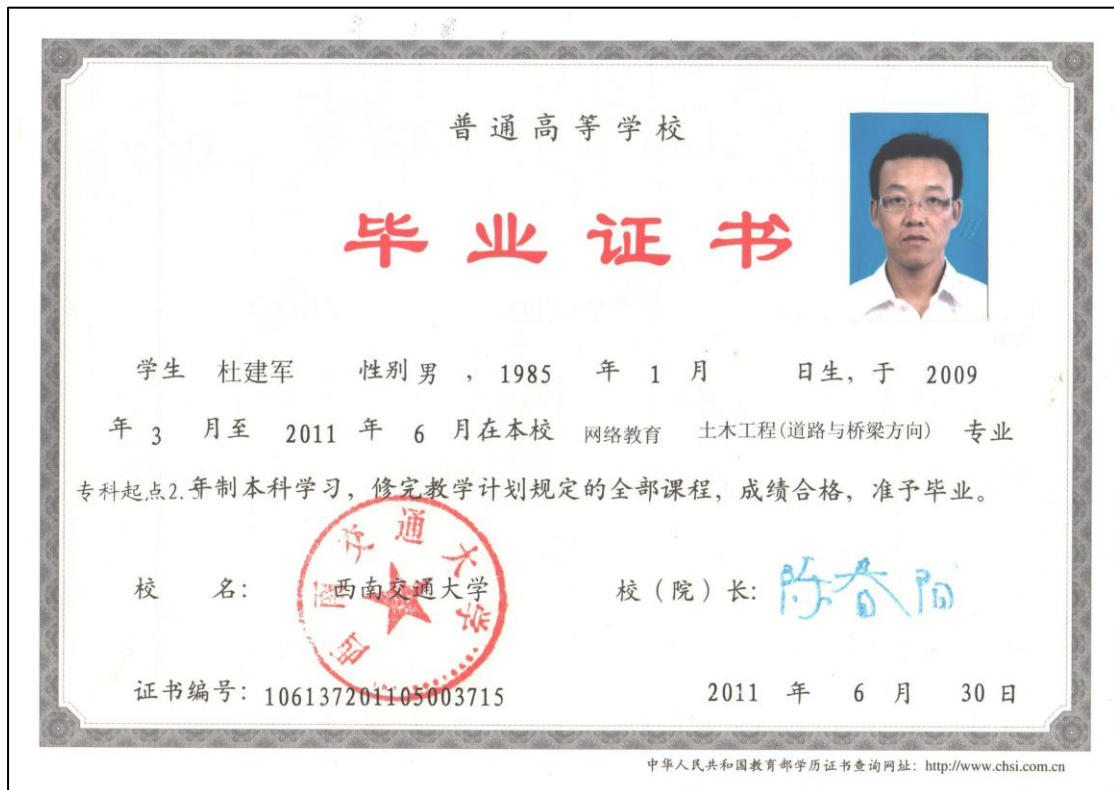 普通高等学校
毕业证书
学生 杜建军 性别 男 , 1985 年 1 月 日生, 于 2009
年 3 月至 2011 年 6 月在本校 网络教育 土木工程(道路与桥梁方向) 专业
专科起点2. 年制本科学习, 修完教学计划规定的全部课程, 成绩合格, 准予毕业。
西南交通大学
校 名: 西南交通大学 校(院)长: 陈春阳
证书编号: 106137201105003715 2011 年 6 月 30 日
中华人民共和国教育部学历证书查询网址: http://www.chsi.com.cn